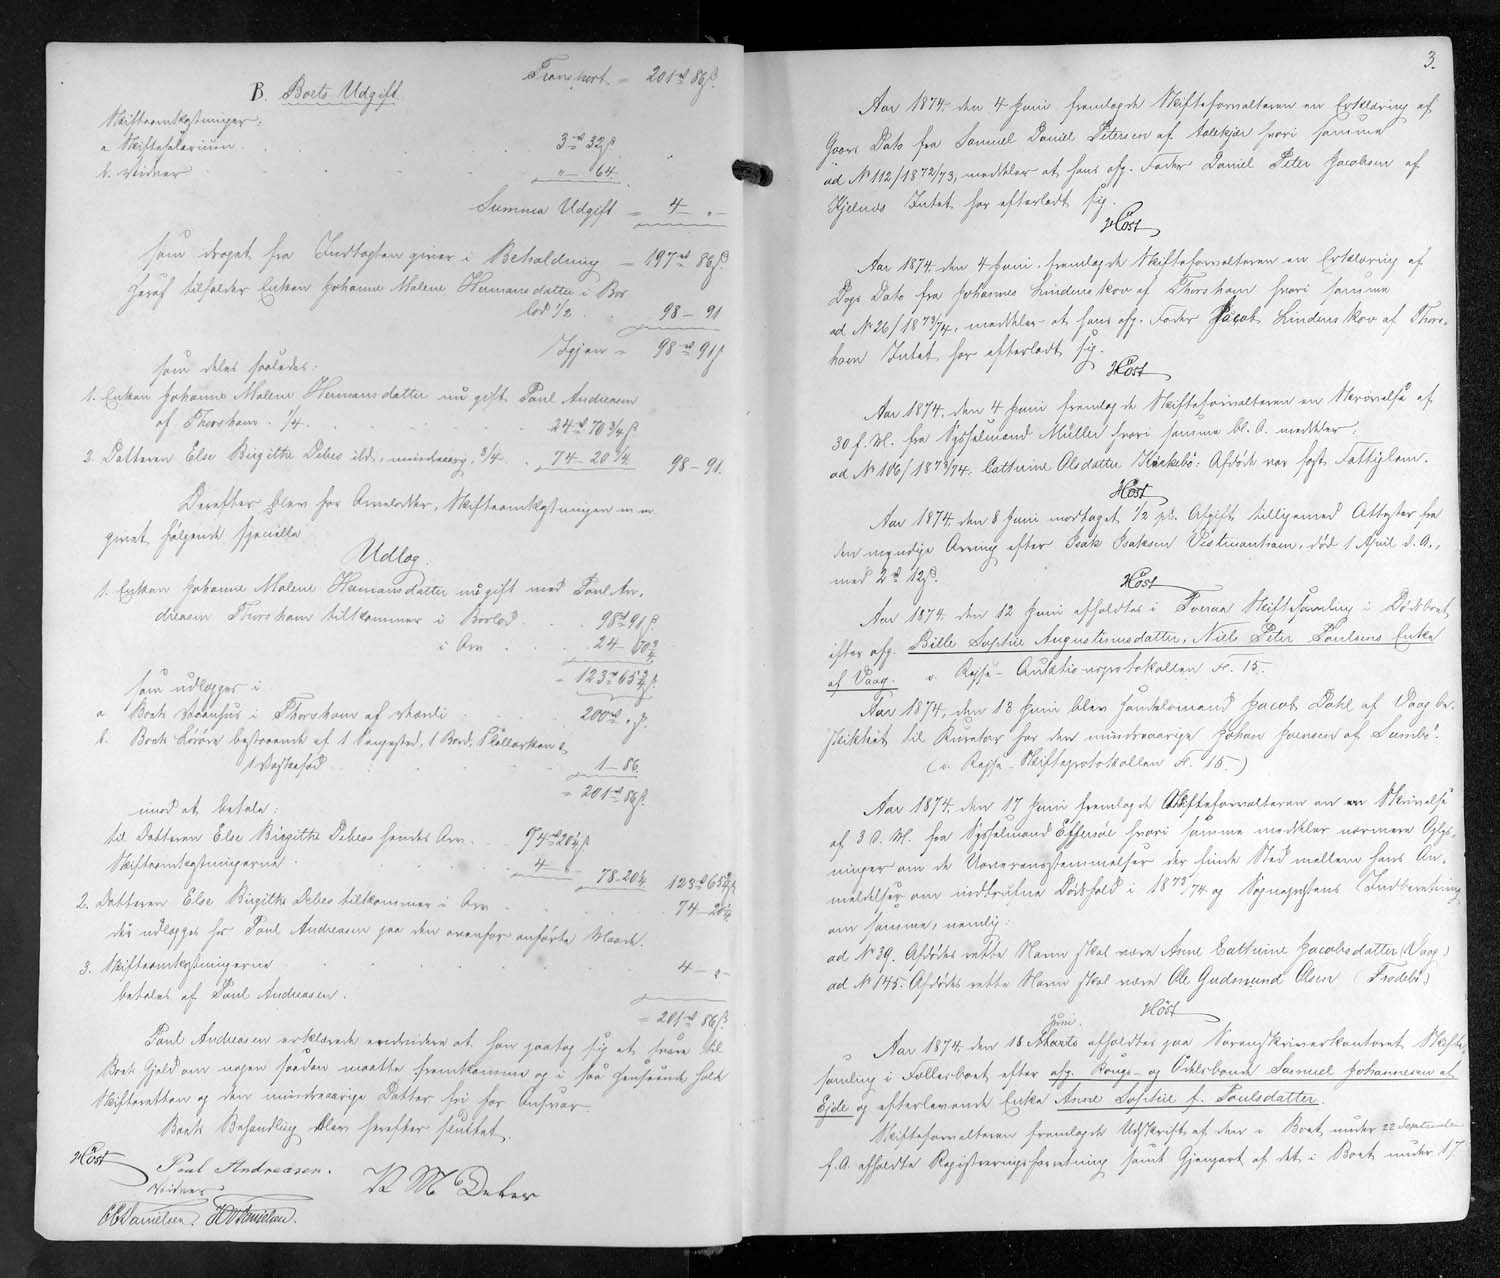 Transport = 201 rd 86 ß.
B. Boets Udgift.
Skifteomkostninger:
a Skiftesalarium . . . 3 rd 32 ß
b. Vidner . . . " - 64.
Summa Udgift = 4 - " -
som draget fra Indtægten giver i Behaldning = 197 rd 86 ß.
heraf tilfalder Enken Johanne Malene Hermansdatter i Bos
lod 1/2 . . 98 - 91
Igjen = 98 rd 91 ß
som deles saaledes:
1. Enken Johanne Malene Hermansdatter nu gift Poul Andreasen
af Thorshavn. 1/4. . . . 24 rd 70 3/4 ß
2. Datteren Else Birgithe Debes ibd., mindreaarig, 3/4. . 74 - 20 1/4. 98 - 91.
Derefter blev for Arvelodder, Skifteomkostninger m. m.
givet følgende specielle
Udlæg.
1. Enken Johanne Malene Hermansdatter nu gift med Poul An-
dreasen Thorshavn tilkommer i Boslod . . . 98 rd 91 ß
i Arv . . . 24 - 70 3/4.
= 123 rd 65 3/4 ß.
som udlægges i
a Boets Vaanhus i Thorshavn af Værdi . . . 200 rd " ß.
b. Boets Løsøre bestaaende af 1 Sengested, 1 Bord,
1 Vaskefad . . . 1 - 86.
= 201 rd 86 ß.
imod at betale:
til Datteren Else Birgithe Debes hendes Arv . . 74 rd 20 1/4 ß
Skifteomkostningerne . . . 4 - " 78 - 20 1/4. 123 rd 65 3/4 ß
2. Datteren Else Birgithe Debes tilkommer i Arv . . . 74 - 20 1/4.
der udlægges hos Poul Andreasen paa den ovenfor anførte Maade.
3. Skifteomkostningerne . . . 4 - " -
betales af Poul Andreasen.
= 201 rd 86 ß.
Poul Andreasen erklærede endvidere at han paatog sig at svare til
Boets Gjæld om nogen saadan maatte fremkomme og i saa Henseende holde
Skifteretten og den mindreaarige Datter fri for Ansvar.
Boets Behandling blev herefter sluttet.
Høst Poul Andreasen. M Debes
Vidner
Danielsen. Danielsen.
3.
Aar 1874 den 4 Juni fremlagde Skifteforvalteren en Erklæring af
Gaars Dato fra Samuel Daniel Petersen af hvori samme
ad No 112/1872/73, meddeler at hans afg. Fader Daniel Peter Jacobsen af
Kjelnæs Intet har efterladt sig.
Høst
Aar 1874 den 4 Juni fremlagde Skifteforvalteren en Erklæring af
Dags Dato fra Johannes Lindenskov af Thorshavn hvori samme
ad No 26/1873/74, meddeler at hans afg. Fader Jacob Lindenskov af Thors-
havn Intet har efterladt sig.
Høst
Aar 1874, den 4 Juni fremlagde Skifteforvalteren en Skrivelse af
30 f. M. fra Sysselmand Müller hvori samme bl. A. meddeler:
ad No 106/1873/74. Cathrine Olsdatter Kirkebø: Afdøde var sogt. Fattiglem.
Høst
Aar 1874 den 8 Juni modtaget 1/2 pCt. Afgift tilligemed Attester fra
den myndige Arving efter Isak Isaksen Vestmanhavn, død 1 April d. A.,
med 2 rd 12 ß.
Høst
Aar 1874 den 12 Juni afholdtes i Tveraa Skiftesamling i Dødsboet
efter afg. Bille Sophie Augustinusdatter, Niels Peter Poulsens Enke
af Vaag. v. Rejse-Auktionsprotokollen Fl. 15.
Aar 1874, den 13 Juni blev Handelsmand Jacob Dahl af Vaag be-
skikket til Kurator for den mindreaarige Johan Joensen af Sumbø.
(v. Rejse-Skifteprotokollen Fl. 15.)
Aar 1874 den 17 Juni fremlagde Skifteforvalteren en Skrivelse
af 3 d. M. fra Sysselmand Effersøe hvori samme meddeler nærmere Oplys-
ninger om de Uoverensstemmelser der finde Sted mellem hans An-
meldelser om indtrufne Dødsfald i 1873/74 og Sognepræstens Indberetning
om samme, nemlig:
ad No 39. Afdødes rette Navn skal være Anne Cathrine Jacobsdatter (Vaag)
ad No 145. Afdødes rette Navn skal være Ole Gudmund Olsen (Frodebø)
Høst
Juni.
Aar 1874 den 18 Marts afholdtes paa Sorenskriverkontoret Skifte-
samling i Fællesboet efter afg. Kongs- og Odelsbonde Samuel Johannesen af
Ejde og efterlevende Enke Anne Sophie f. Poulsdatter.
Skifteforvalteren fremlagde Udskrift af den i Boet under 22 September
f. A. afholdte Registreringsforretning samt Gjenpart af det i Boet under 17